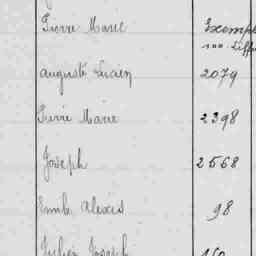 Pierre Marie Exempt
Auguste Lucien 2079
Pierre Marie 2398
Joseph 2568
Emile Alexis 98
Julien Joseph